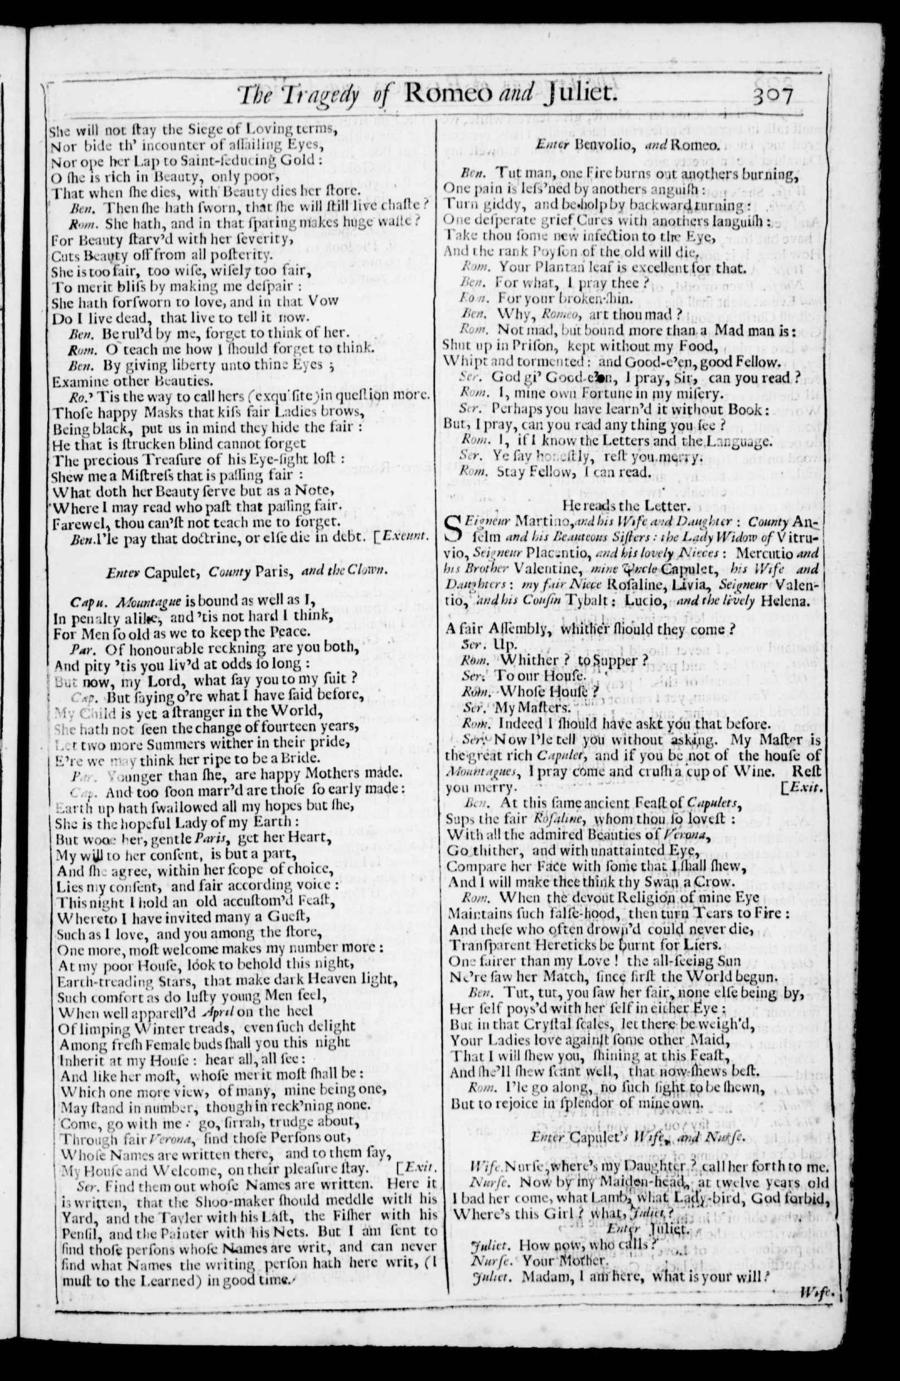 The Tragedy of Romeo and Juliet. 307
She will not ſtay the Siege of Loving terms,
Nor bide th' incounter of aſſailing Eyes,
Nor ope her Lap to Saint-ſeducing Gold :
O ſhe is rich in Beauty, only poor,
That when ſhe dies, with Beauty dies her ſtore.
Ben. Then ſhe hath ſworn, that ſhe will ſtill live chaſte ?
Rom. She hath, and in that ſparing makes huge waſte ?
For Beauty ſtarv'd with her ſeverity,
Cuts Beauty off from all poſterity.
She is too fair, too wiſe, wiſely too fair,
To merit bliſs by making me deſpair :
She hath forſworn to love, and in that Vow
Do I live dead, that live to tell it now.
Ben. Be rul'd by me, forget to think of her.
Rom. O teach me how I ſhould forget to think.
Ben. By giving liberty unto thine Eyes ;
Examine other Beauties.
Ro.' Tis the way to call hers (exquiſite)in queſtion more.
Thoſe happy Masks that kiſs fair Ladies brows,
Being black, put us in mind they hide the fair :
He that is ſtrucken blind cannot forget
The precious Treaſure of his Eye-ſight loſt :
Shew me a Miſtreſs that is paſſing fair :
What doth her Beauty ſerve but as a Note,
Where I may read who paſt that paſſing fair.
Farewel, thou can'ſt not teach me to forget.
Ben. I'le pay that doctrine, or elſe die in debt. [Exeunt.
Enter Capulet, County Paris, and the Clown.
Capu. Mountague is bound as well as I,
In penalty alike, and 'tis not hard I think,
For Men ſo old as we to keep the Peace.
Par. Of honourable reckning are you both,
And pity 'tis you liv'd at odds ſo long :
But now, my Lord, what ſay you to my ſuit ?
Cap. But ſaying o're what I have ſaid before,
My Child is yet a ſtranger in the World,
She hath not ſeen the change of fourteen years,
Let two more Summers wither in their pride,
E're we may think her ripe to be a Bride.
Par. Younger than ſhe, are happy Mothers made.
Cap. And too ſoon marr'd are thoſe ſo early made :
Earth up hath ſwallowed all my hopes but ſhe,
She is the hopeful Lady of my Earth :
But wooe her, gentle Paris, get her Heart,
My will to her conſent, is but a part,
And ſhe agree, within her ſcope of choice,
Lies my conſent, and fair according voice :
This night I hold an old accuſtom'd Feaſt,
Whereto I have invited many a Gueſt,
Such as I love, and you among the ſtore,
One more, moſt welcome makes my number more :
At my poor Houſe, look to behold this night,
Earth-treading Stars, that make dark Heaven light,
Such comfort as do luſty young Men feel,
When well apparell'd April on the heel
Of limping Winter treads, even ſuch delight
Among freſh Female buds ſhall you this night
Inherit at my Houſe : hear all, all ſee :
And like her moſt, whoſe merit moſt ſhall be :
Which one more view, of many, mine being one,
May ſtand in number, though in reck'ning none.
Come, go with me : go, ſirrah, trudge about,
Through fair Verona, find thoſe Perſons out,
Whoſe Names are written there, and to them ſay,
My Houſe and Welcome, on their pleaſure ſtay. [Exit.
Ser. Find them out whoſe Names are written. Here it
is written, that the Shoo-maker ſhould meddle with his
Yard, and the Tayler with his Laſt, the Fiſher with his
Penſil, and the Painter with his Nets. But I am ſent to
find thoſe perſons whoſe Names are writ, and can never
find what Names the writing perſon hath here writ, (I
muſt to the Learned) in good time.
Enter Benvolio, and Romeo.
Ben. Tut man, one Fire burns out anothers burning,
One pain is leſs'ned by anothers anguiſh :
Turn giddy, and be holp by backward turning :
One deſperate grief Cures with anothers languiſh :
Take thou ſome new infection to the Eye,
And the rank Poyſon of the old will die.
Rom. Your Plantan leaf is excellent for that.
Ben. For what, I pray thee ?
Rom. For your broken-ſhin.
Ben. Why, Romeo, art thou mad ?
Rom. Not mad, but bound more than a Mad man is :
Shut up in Priſon, kept without my Food,
Whipt and tormented : and Good-e'en, good Fellow.
Ser. God gi' Good-e'en, I pray, Sir, can you read ?
Rom. I, mine own Fortune in my miſery.
Ser. Perhaps you have learn'd it without Book :
But, I pray, can you read any thing you ſee ?
Rom. I, if I know the Letters and the Language.
Ser. Ye ſay honeſtly, reſt you merry.
Rom. Stay Fellow, I can read.
He reads the Letter.
SEigneur Martino, and his Wife and Daughter : County An-
ſelm and his Beauteous Siſters : the Lady Widow of Vitru-
vio, Seigneur Placentio, and his lovely Nieces : Mercutio and
his Brother Valentine, mine Uncle Capulet, his Wife and
Daughters : my fair Niece Roſaline, Livia, Seigneur Valen-
tio, and his Couſin Tybalt : Lucio, and the lively Helena.
A fair Aſſembly, whither ſhould they come ?
Ser. Up.
Rom. Whither ? to Supper ?
Ser. To our Houſe.
Rom. Whoſe Houſe ?
Ser. My Maſters.
Rom. Indeed I ſhould have askt you that before.
Ser. Now I'le tell you without asking. My Maſter is
the great rich Capulet, and if you be not of the houſe of
Mountagues, I pray come and cruſh a cup of Wine. Reſt
you merry. [Exit.
Ben. At this ſame ancient Feaſt of Capulets,
Sups the fair Roſaline, whom thou ſo loveſt :
With all the admired Beauties of Verona,
Go thither, and with unattainted Eye,
Compare her Face with ſome that I ſhall ſhew,
And I will make thee think thy Swan a Crow.
Rom. When the devout Religion of mine Eye
Maintains ſuch falſe-hood, then turn Tears to Fire :
And theſe who often drown'd could never die,
Tranſparent Hereticks be burnt for Liers.
One fairer than my Love ! the all-ſeeing Sun
Ne're ſaw her Match, ſince firſt the World begun.
Ben. Tut, tut, you ſaw her fair, none elſe being by,
Her ſelf poys'd with her ſelf in either Eye :
But in that Cryſtal ſcales, let there be weigh'd,
Your Ladies love againſt ſome other Maid,
That I will ſhew you, ſhining at this Feaſt,
And ſhe'll ſhew ſcant well, that now ſhews beſt.
Rom. I'le go along, no ſuch ſight to be ſhewn,
But to rejoice in ſplendor of mine own.
Enter Capulet's Wife, and Nurſe.
Wife. Nurſe, where's my Daughter ? call her forth to me.
Nurſe. Now by my Maiden-head, at twelve years old
I bad her come, what Lamb, what Lady-bird, God forbid,
Where's this Girl ? what, Juliet ?
Enter Juliet.
Juliet. How now, who calls ?
Nurſe. Your Mother.
Juliet. Madam, I am here, what is your will ?
Wife.